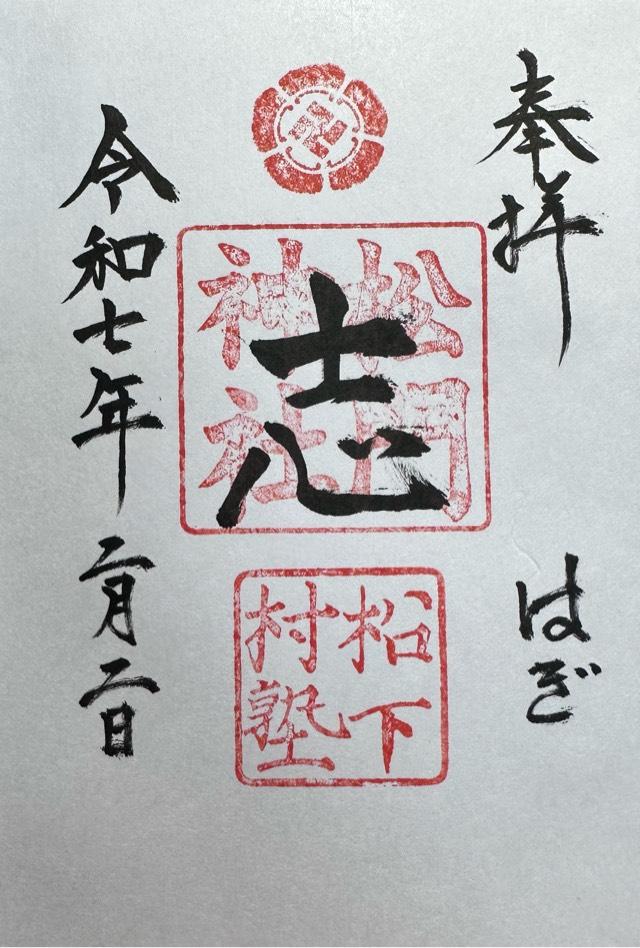 奉拝
はぎ
志
松門
神社
松下
村塾
令和七年 二月二日